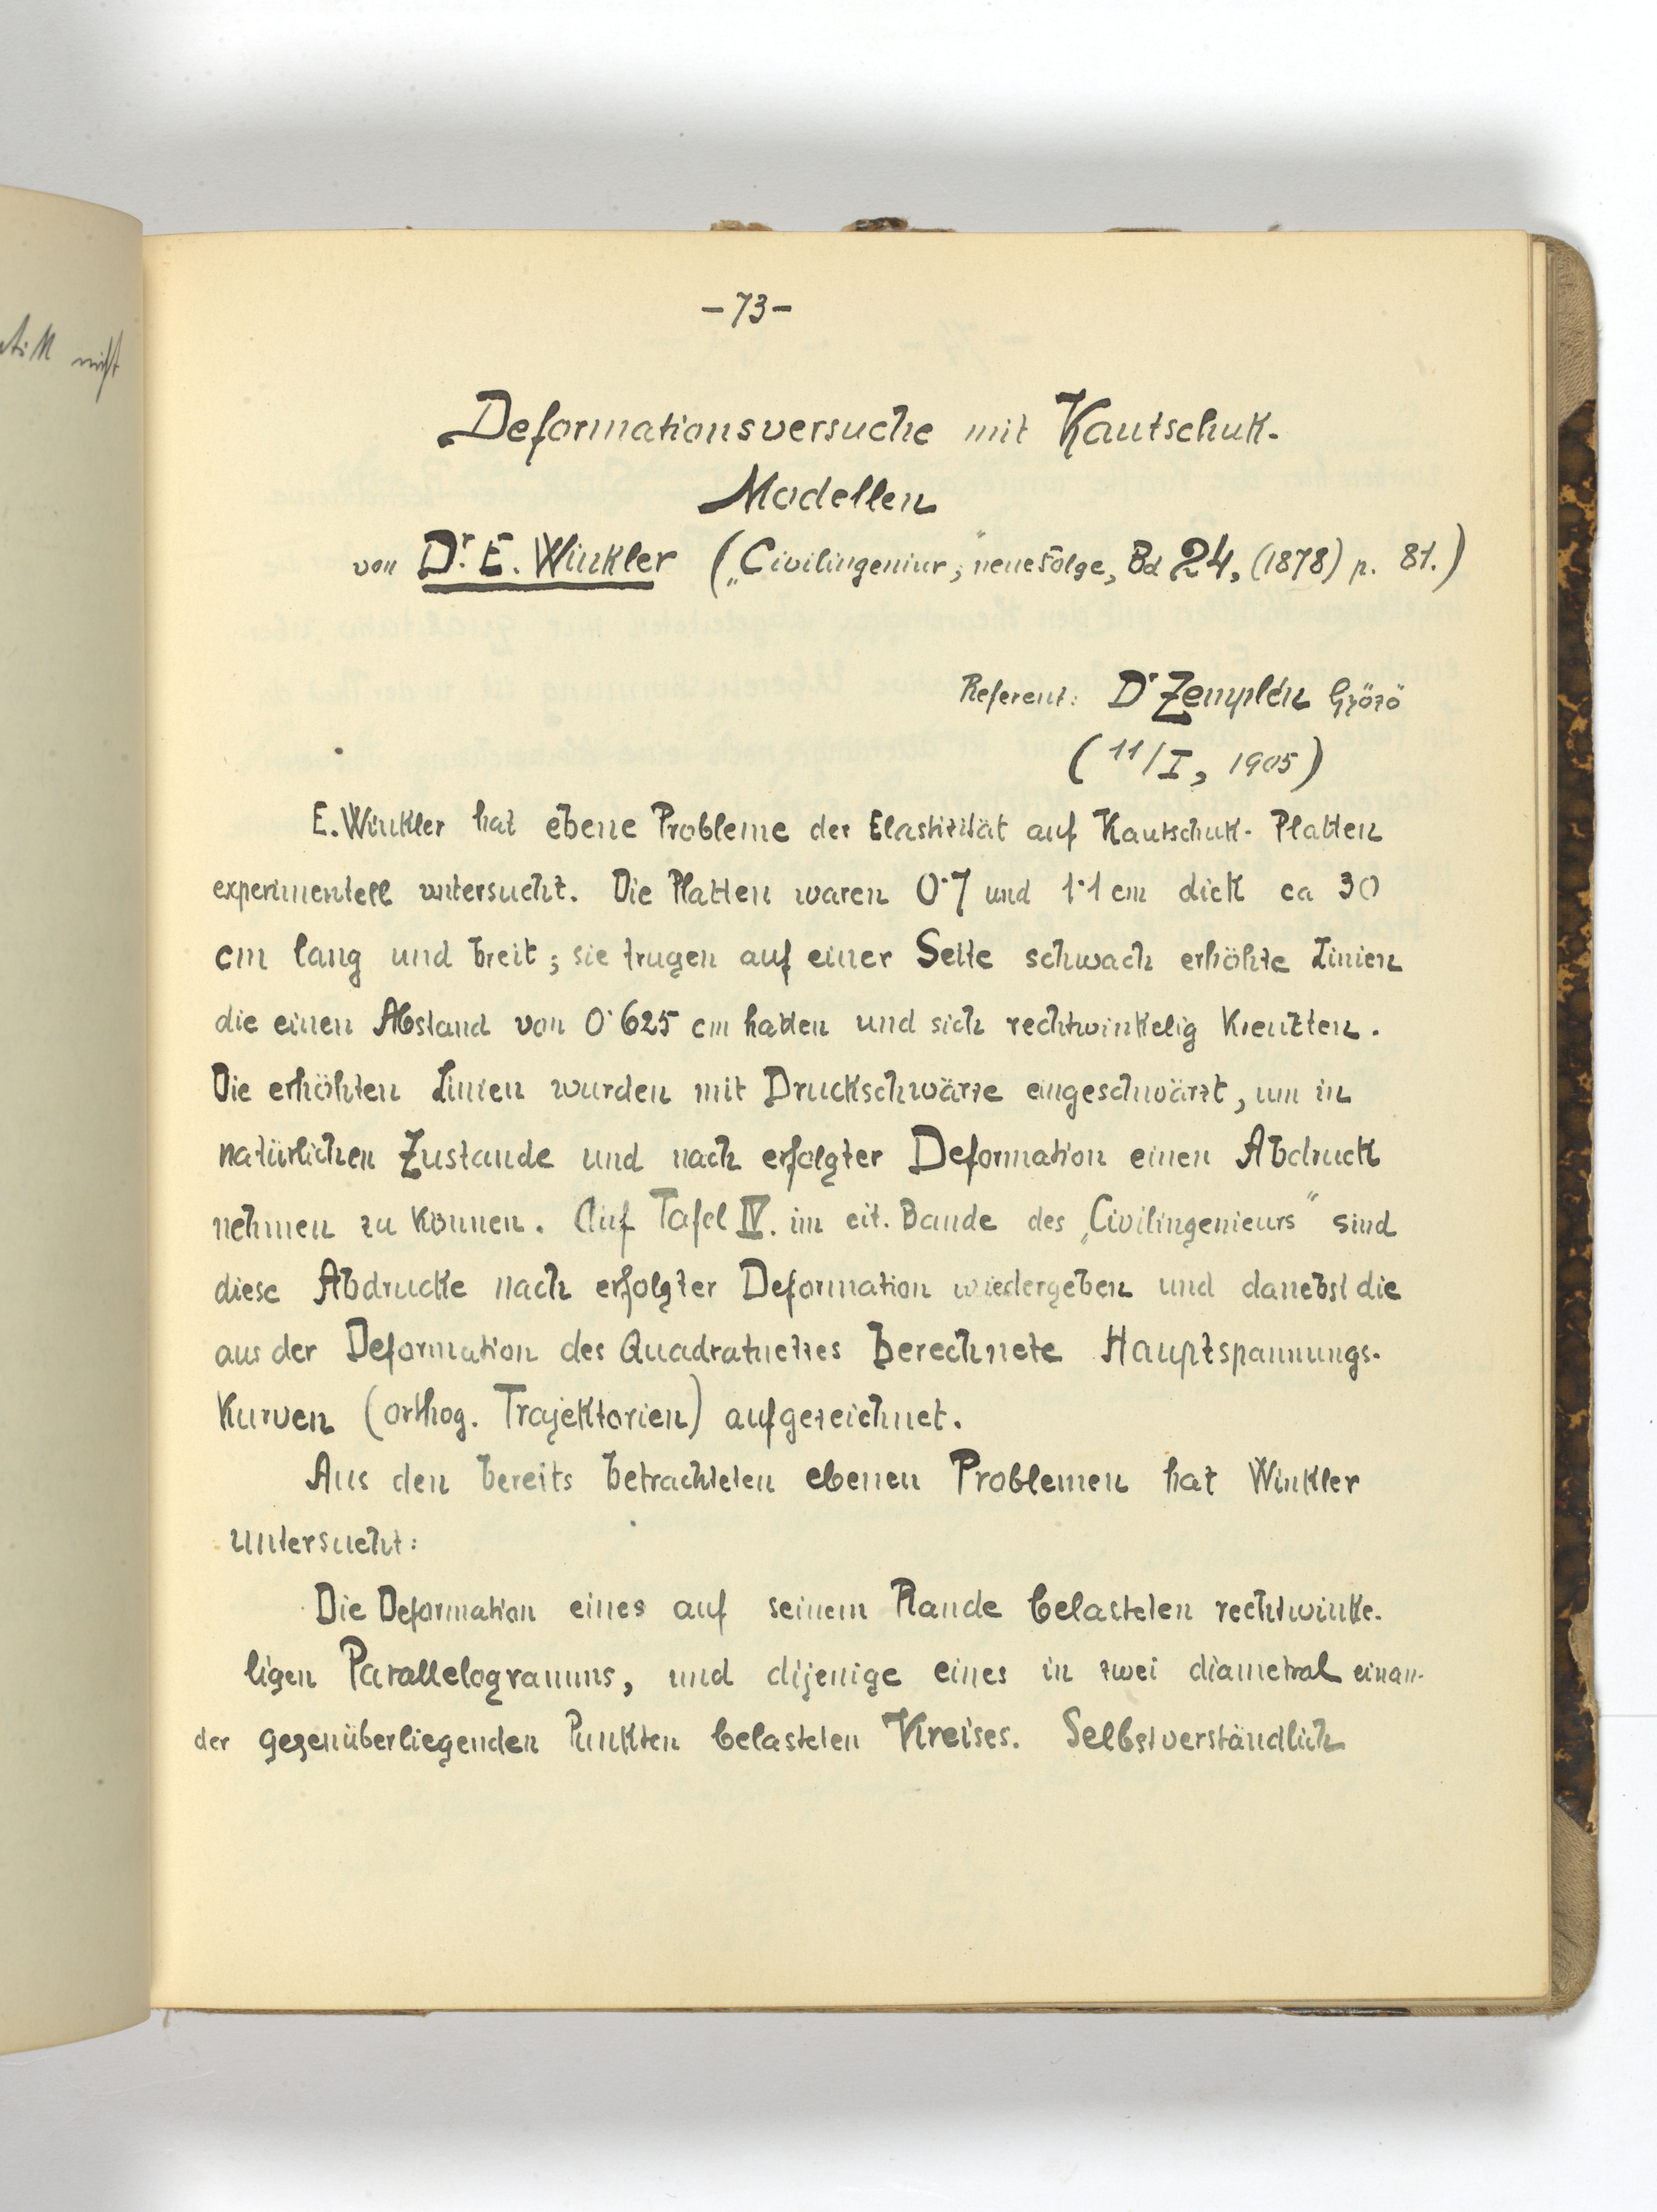 -73-
Deformationsversuche mit Kautschuk-
Modellen
von Dr. E. Winkler („Civilingeniur," neue Folge, Bd 24, (1878) p. 81.)
Referent: Dr Zemplén Győző
(11/I, 1905)
E. Winkler hat ebene Probleme der Elastizität auf Kautschuk-Platten
experimentell untersucht. Die Platten waren 0·7 und 1·1 cm dick ca 30
cm lang und breit; sie trugen auf einer Seite schwach erhöhte Linien
die einen Abstand von 0·625 cm hatten und sich rechtwinkelig Kreuzten.
Die erhöhten Linien wurden mit Druckschwärze eingeschwärzt, um in
natürlichen Zustande und nach erfolgter Deformation einen Abdruck
nehmen zu können. Auf Tafel IV. im cit. Bande des „Civilingenieurs" sind
diese Abdrucke nach erfolgter Deformation wiedergeben und danebst die
aus der Deformation des Quadratnetzes berechnete Hauptspannungs-
Kurven (orthog. Trajektorien) aufgezeichnet.
Aus den bereits betrachteten ebenen Problemen hat Winkler
untersucht:
Die Deformation eines auf seinem Rande belasteten rechtwinke-
ligen Parallelogramms, und dijenige eines in zwei diametral einan-
der gegenüberliegenden Punkten belasteten Kreises. Selbstverständlich
nicht